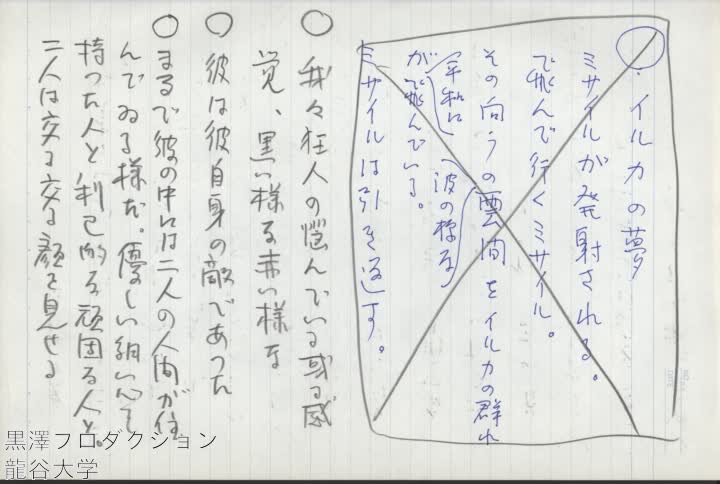 ・イルカの夢
ミサイルが発射される。
飛んで行くミサイル。
その向うの雲間をイルカの群れ
(平和に)(波の様な)
が飛んでいる。
ミサイルは引き返す。
○ 我々狂人の悩んでいる或る感
覚、黒い様な赤い様な
○ 彼は彼自身の敵であった
○ まるで彼の中には二人の人間が住
んでゐる様だ。優しい細い心を
持った人と利己的な頑固な人と。
二人は交る交る顔を見せる
黒澤プロダクション
龍谷大学